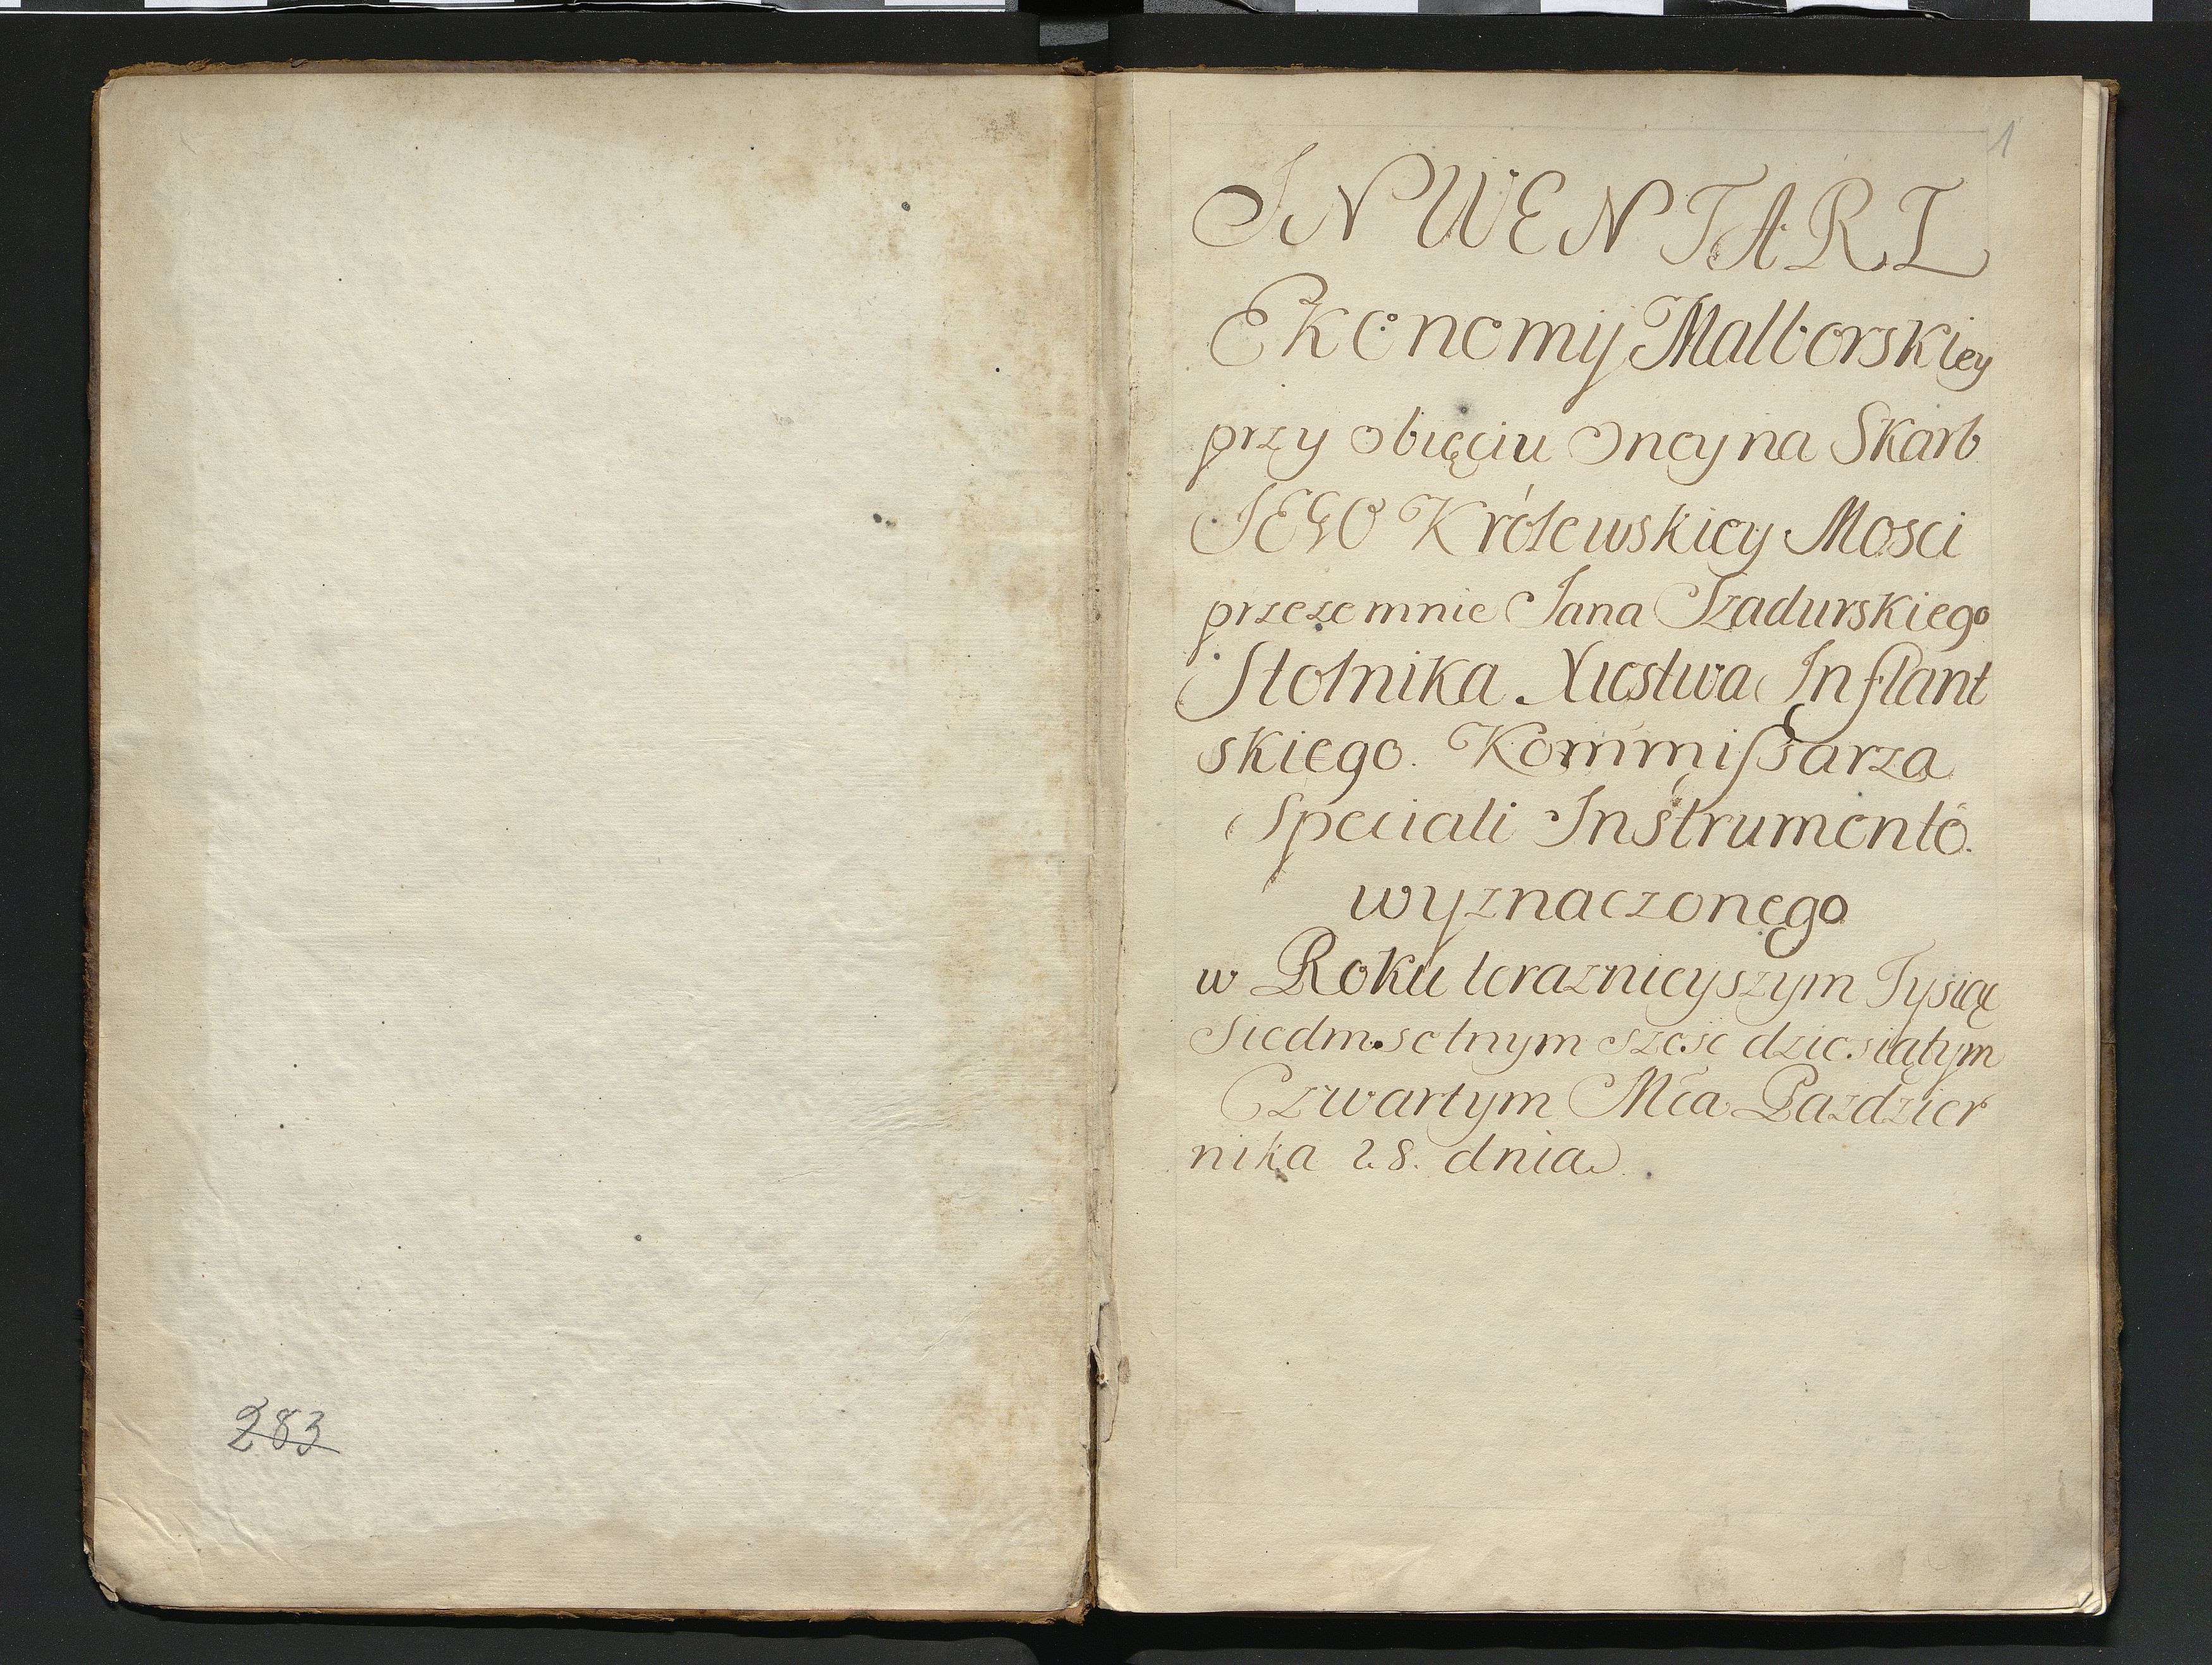 283
1
INWENTARZ
Ekonomij Malborskiey
przy obięciu Oney na Skarb
JEGO Królewskiey Mosci
przezemnie Jana Szadurskiego
Stolnika Xięstwa Inflant
skiego. Kommißarza
Speciali Instrumento
wyznaczonego
w Roku teraznieyszym Tysiąc
Siedmsetnym szesc dziesiątym
Czwartym Mca Pazdzier
nika 28. dnia.